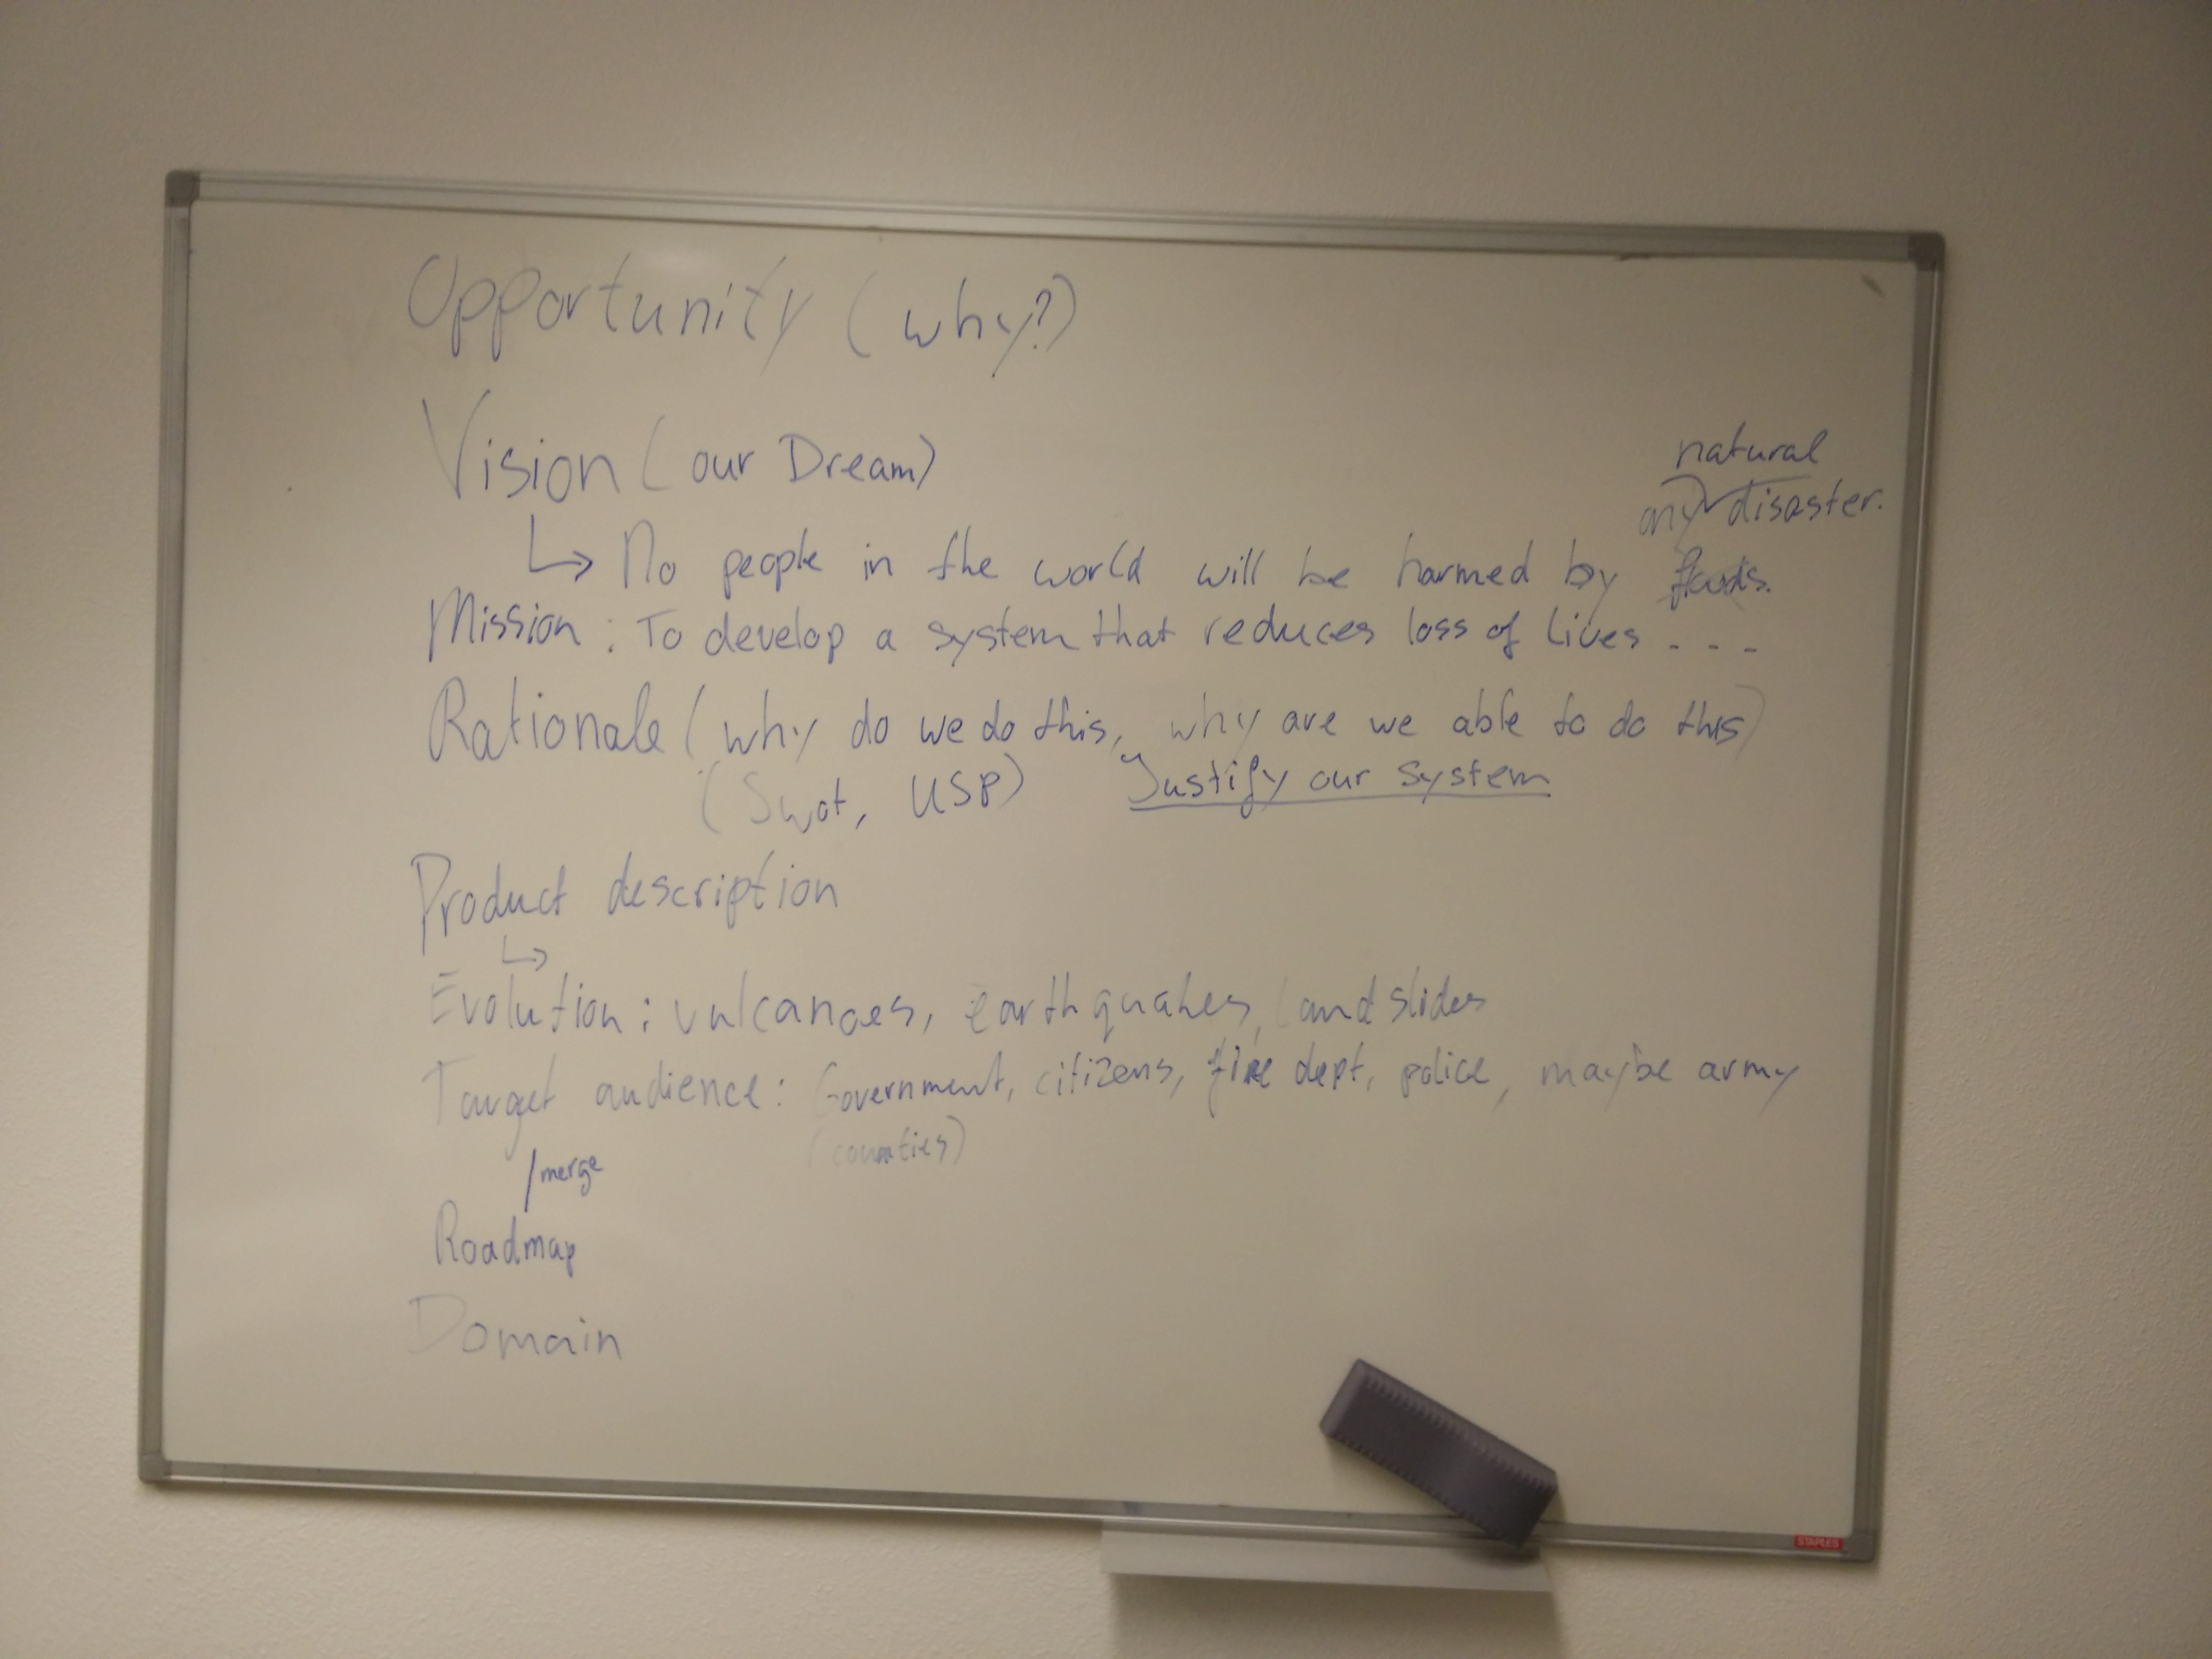 Opportunity (why?)
Vision (our Dream)
natural
any disaster.
↳ No people in the world will be harmed by floods.
Mission : To develop a system that reduces loss of lives - - -
Rationale (why do we do this, why are we able to do this)
(Swot, USP) Justify our system
Product description
↳
Evolution : vulcanoes, earthquakes, landslides
Target audience : Government, citizens, fire dept, police, maybe army
(counties)
/merge
Roadmap
Domain
STAPLES